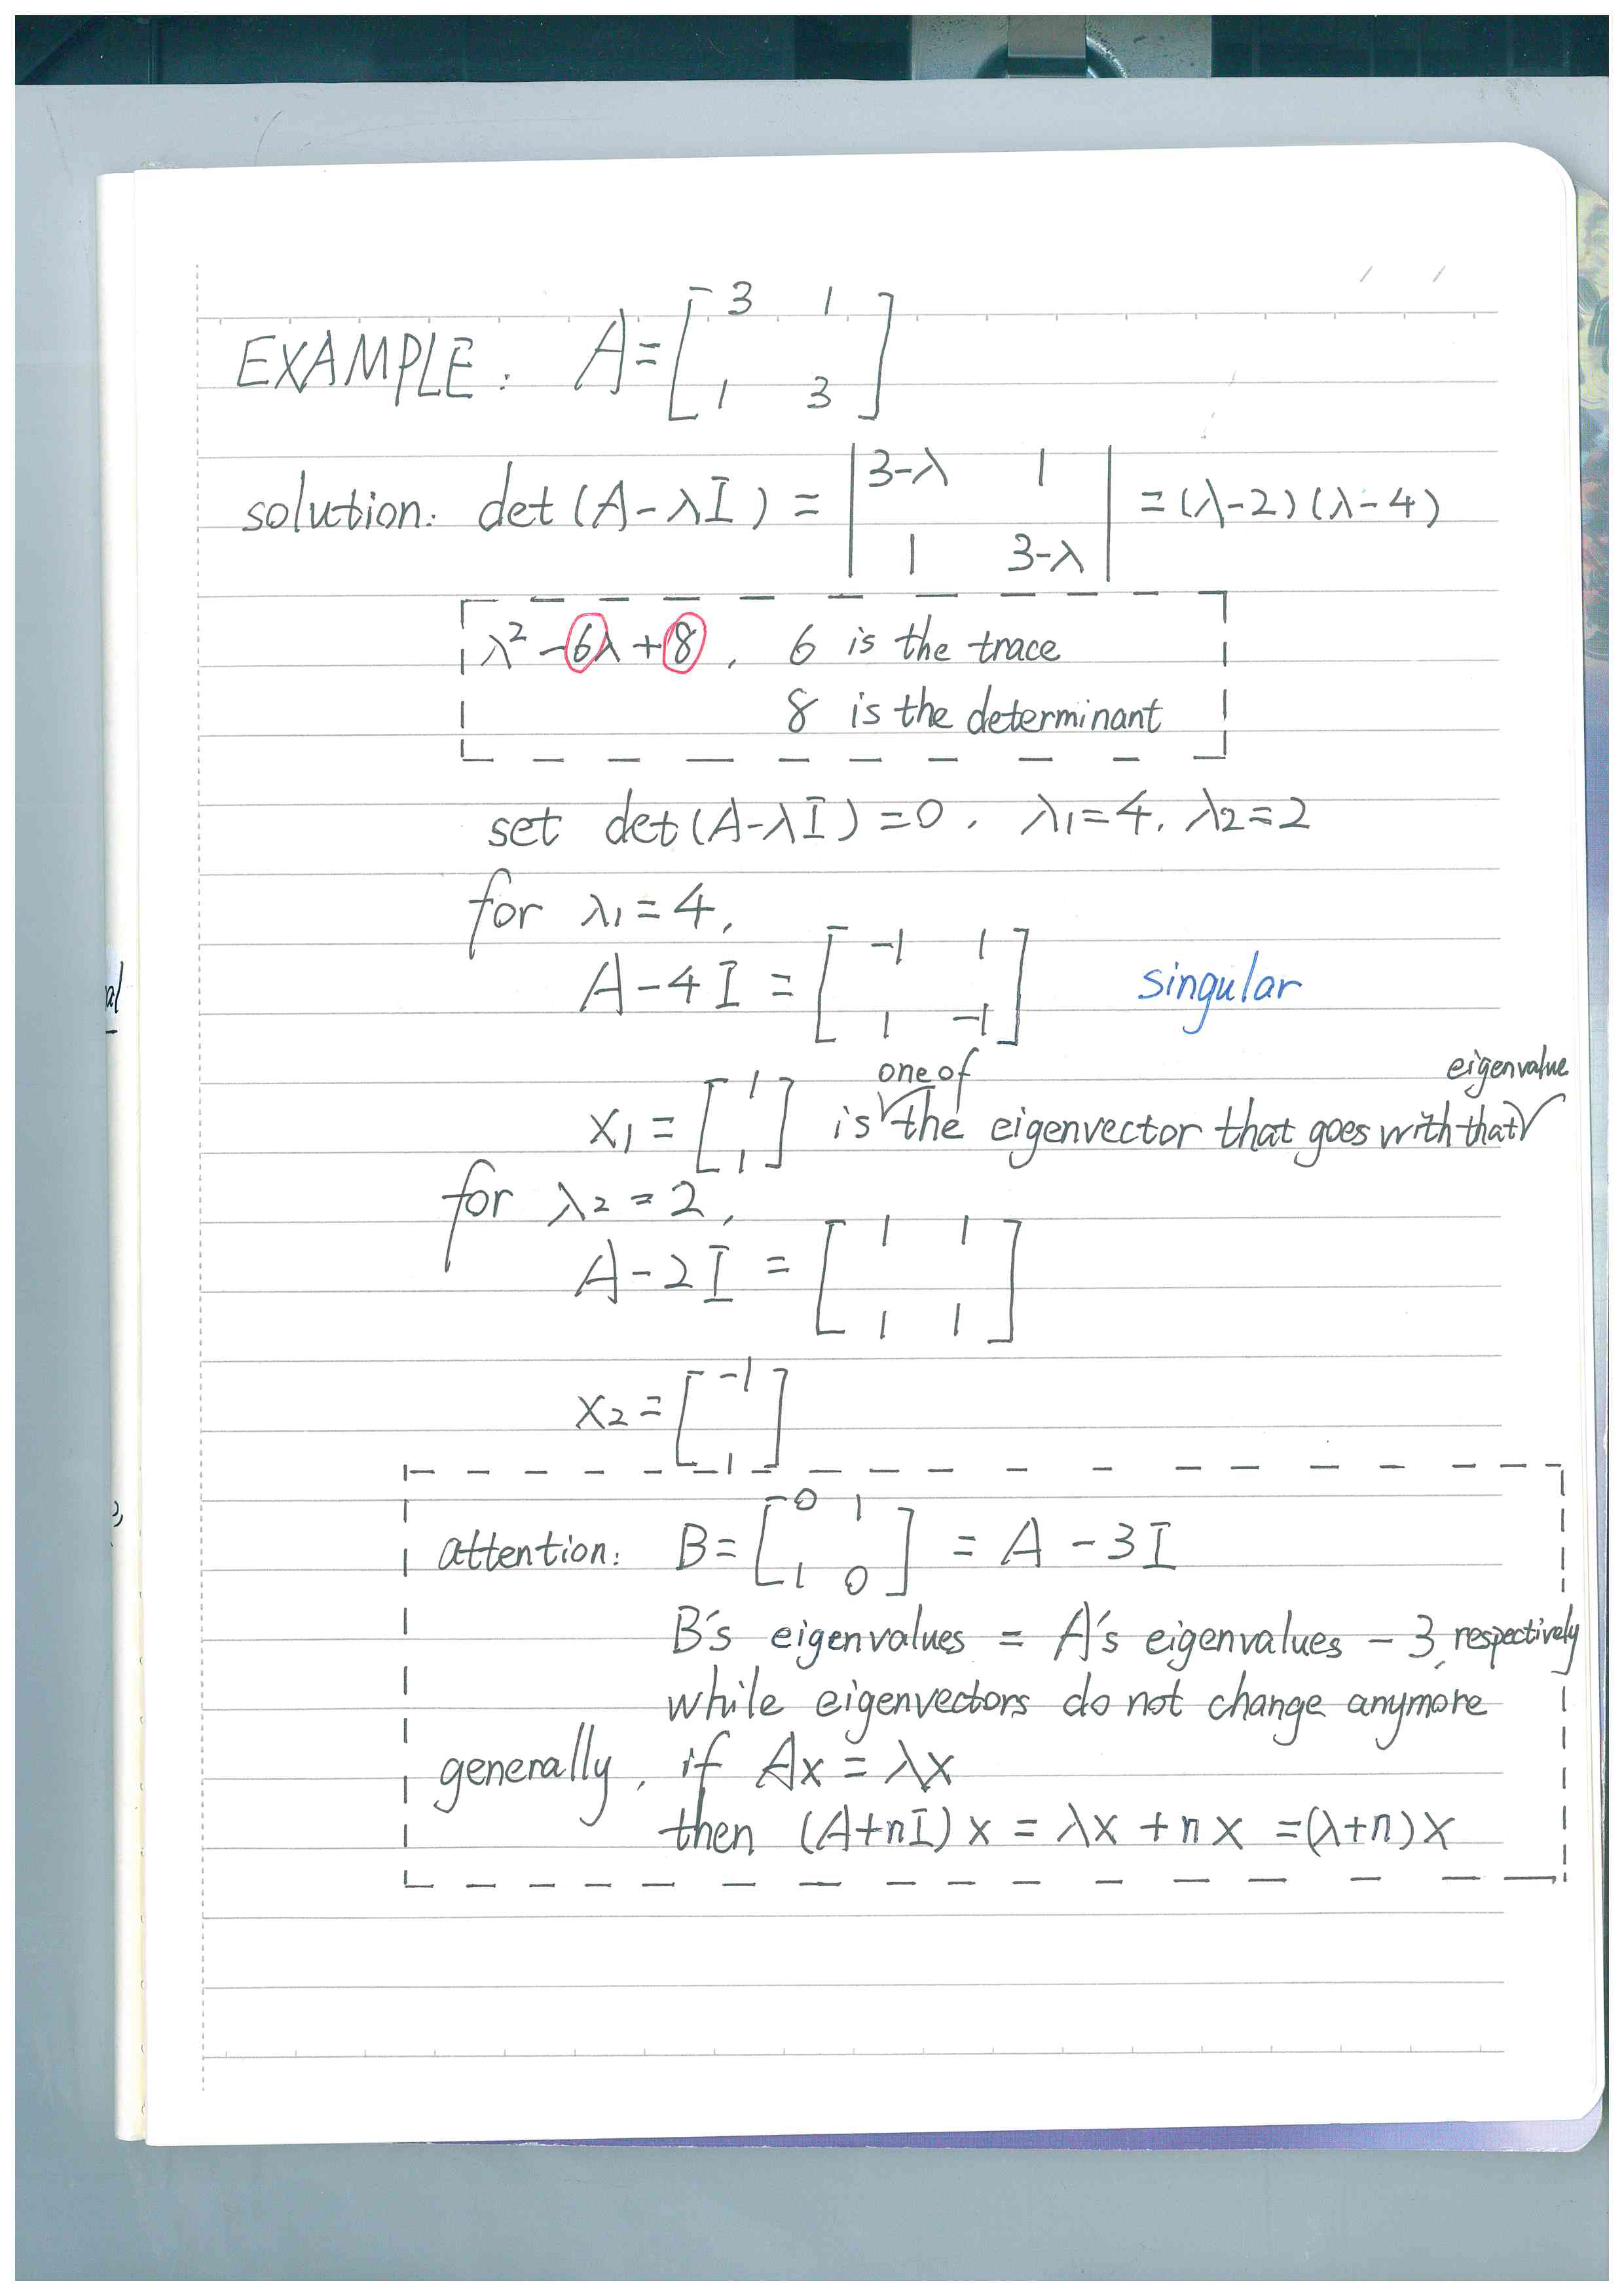 EXAMPLE: A = [ 3 1
1 3 ]
solution: det (A - λI) = | 3-λ 1
1 3-λ | = (λ-2)(λ-4)
λ² - 6λ + 8 , 6 is the trace
8 is the determinant
set det(A-λI) = 0 , λ1 = 4, λ2 = 2
for λ1 = 4,
A - 4I = [ -1 1
1 -1 ] singular
x1 = [ 1
1 ] is one of the eigenvector that goes with that eigenvalue
for λ2 = 2,
A - 2I = [ 1 1
1 1 ]
x2 = [ -1
1 ]
attention: B = [ 0 1
1 0 ] = A - 3I
B's eigenvalues = A's eigenvalues - 3, respectively
while eigenvectors do not change anymore
generally, if Ax = λx
then (A+nI)x = λx + nx = (λ+n)x